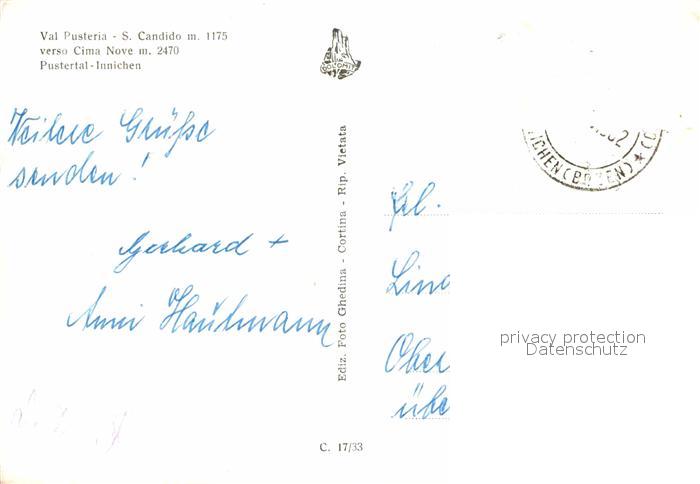 Val Pusteria - S. Candido m. 1175
verso Cima Nove m. 2470
Pustertal-Innichen
DOLOMITI
Grüße
senden!
Gerhard +
Anni Hautmann
Ediz. Foto Ghedina - Cortina - Rip. Vietata
ICHEN (BOZEN) ★
Frl.
Lin
Ober
übe
privacy protection
Datenschutz
C. 17/33